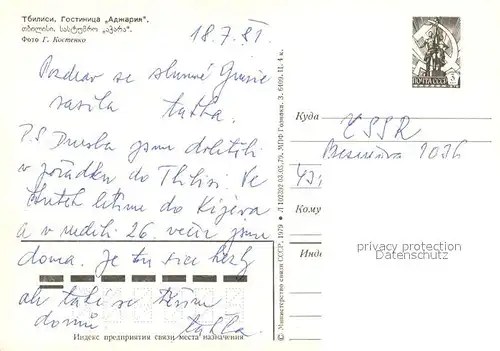 Тбилиси. Гостиница „Аджария".
თბილისი. სასტუმრო „აჭარა".
Фото Г. Костенко
18.7.81.
Pozdrav ze slunné Gruzie
zasílá taťka.
P.S Dneska jsme doletěli
v pořádku do Tbilisi. Ve
čtvrtek letíme do Kijeva
a v neděli 26. večer jsme
doma. Je tu sice hezky
ale také se těším
domů taťka.
Индекс предприятия связи места назначения
© Министерство связи СССР. 1979 Л 102202 03.05.79. МПФ Гознака. З. 6609. Ц. 4 к.
ПОЧТА СССР
Куда
ČSSR
1036
Кому
Инд
privacy protection
Datenschutz